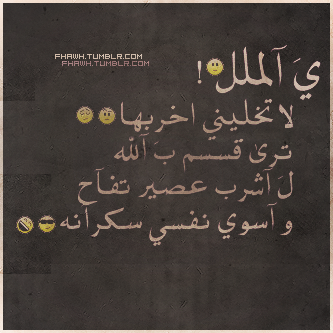 FHAWH.TUMBLR.COM
FHAWH.TUMBLR.COM
يَ آلملل !
لا تخليني اخربها
ترىٰ قسسم بَ آلله
لَ آشرب عصير تفآح
و آسوي نفسي سكرانه